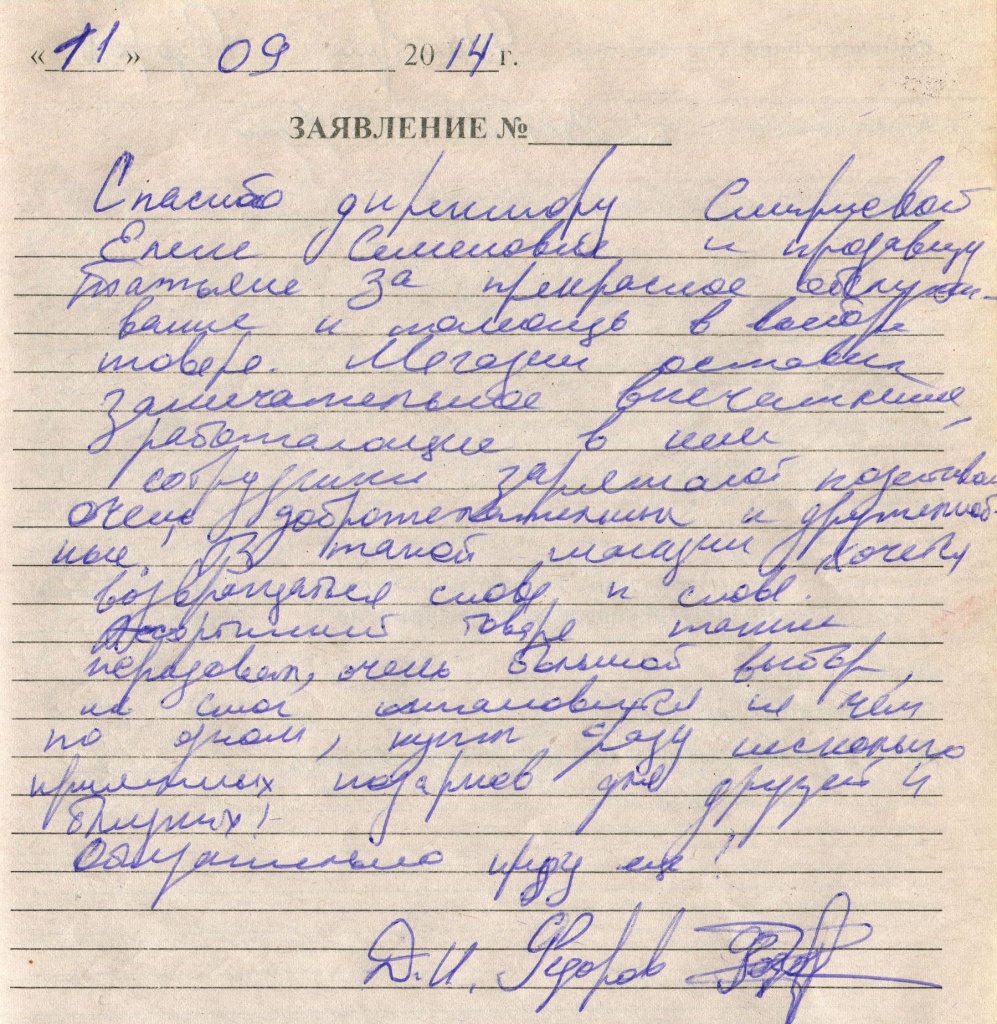 « 11 » 09 2014 г.
ЗАЯВЛЕНИЕ №
Спасибо директору Смирновой
Елене Семеновне и продавцу
Татьяне за прекрасное обслужи-
вание и помощь в выборе
товара. Магазин оставил
замечательное впечатление,
работающие в нем
сотрудники заряжают позитивом
очень доброжелательны и дружелюб-
ные. В такой магазин хочется
возвращаться снова и снова.
Ассортимент товара также
порадовал, очень большой выбор,
не смог остановится не чём
по одном, купил сразу несколько
приятных подарков для друзей и
близких!
Обязательно приду еще!
Д.И. Федоров